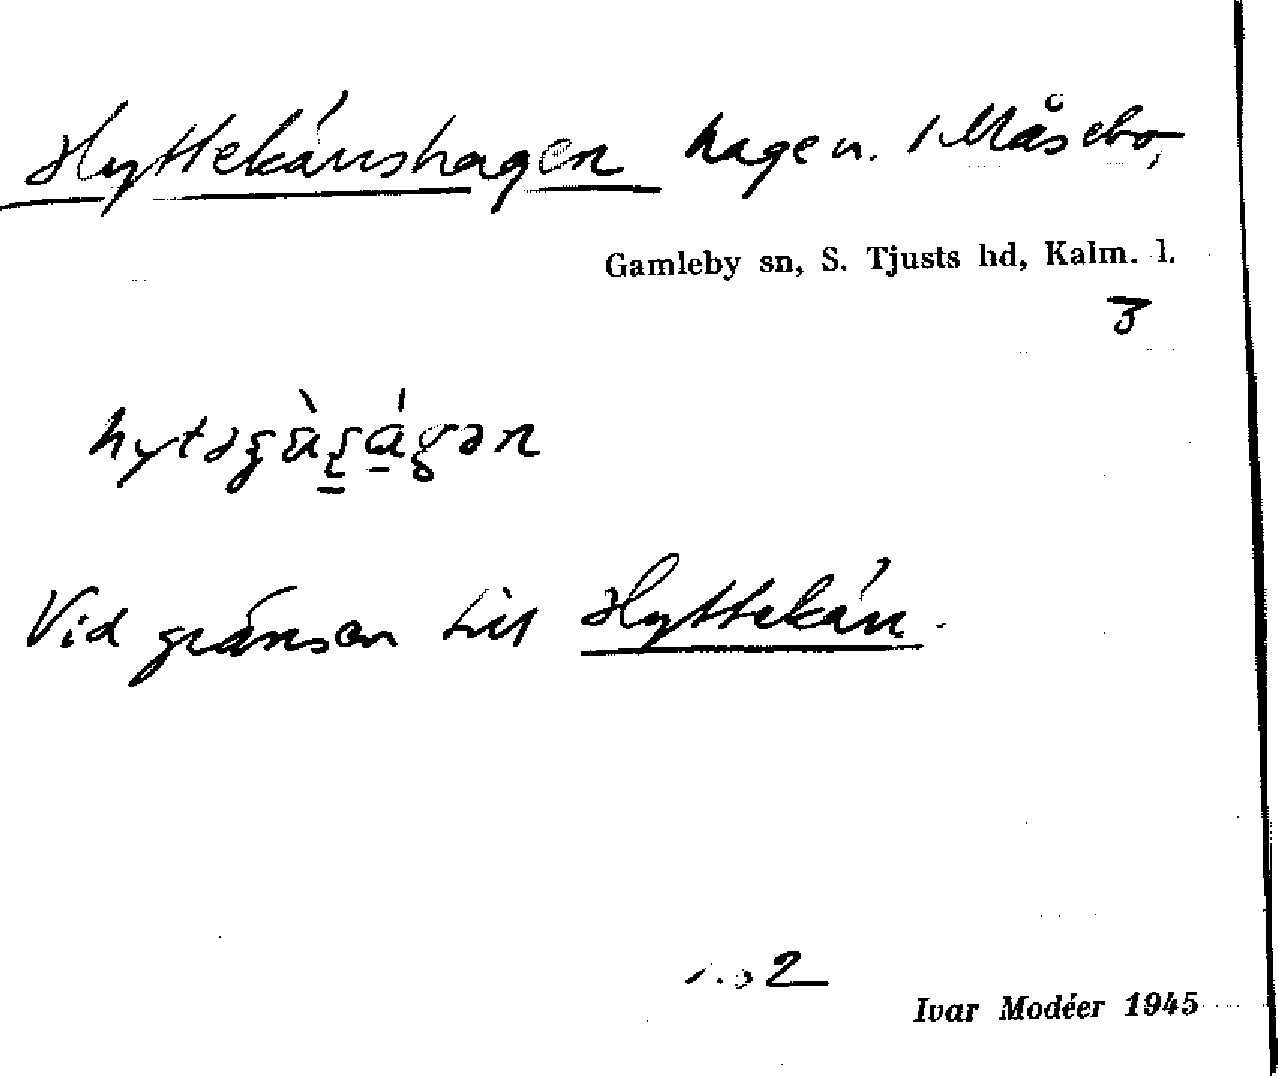 Hyttekärrshagen hage n. Måsebo,
Gamleby sn, S. Tjusts hd, Kalm. l.
3
Vid gränsen till Hyttekärr.
2
Ivar Modéer 1945